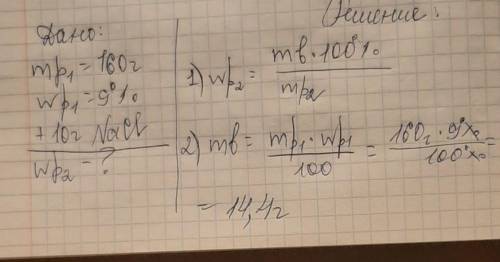 Дано:
mр₁ = 160г
wр₁ = 9%
+ 10г NaCl
wр₂ = ?
Решение:
1) wр₂ = mв·100% / mр₂
2) mв = mр₁·wр₁ / 100 = 160г·9% / 100% =
= 14,4г